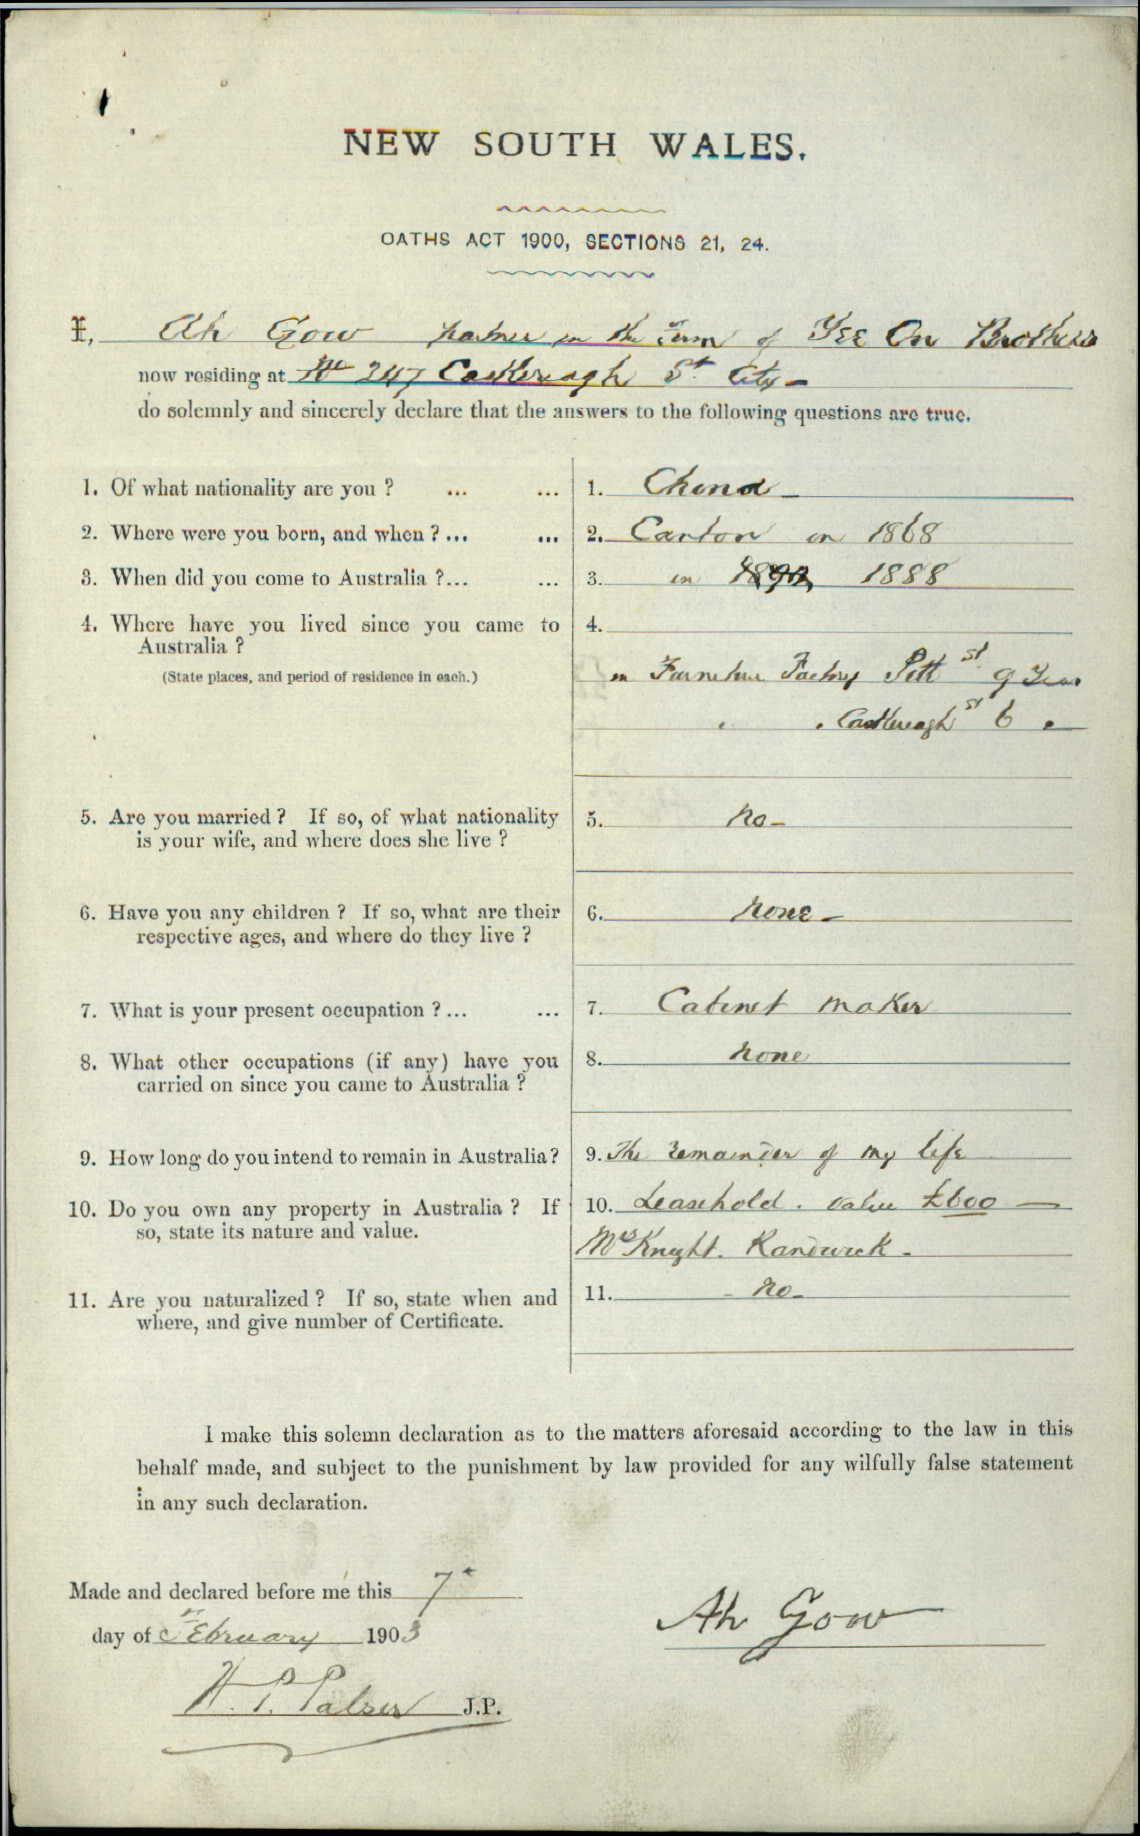 NEW SOUTH WALES.
OATHS ACT 1900, SECTIONS 21, 24.
I, Ah Gow partner in the Firm of Yee On Brothers
now residing at No 247 Castlereagh St. City -
do solemnly and sincerely declare that the answers to the following questions are true.
1. Of what nationality are you ? ... ... 1. China -
2. Where were you born, and when ? ... ... 2. Canton in 1868
3. When did you come to Australia ?... ... 3. in 1892 1888
4. Where have you lived since you came to 4.
Australia ?
(State places, and period of residence in each.) in Furniture Factory Pitt St 9 Years
" " Castlereagh St 6 "
5. Are you married ? If so, of what nationality 5. no -
is your wife, and where does she live ?
6. Have you any children ? If so, what are their 6. none -
respective ages, and where do they live ?
7. What is your present occupation ? ... ... 7. Cabinet maker
8. What other occupations (if any) have you 8. none
carried on since you came to Australia ?
9. How long do you intend to remain in Australia? 9. The remainder of my life
10. Do you own any property in Australia ? If 10. Leasehold . value £600 —
so, state its nature and value.
McKnight. Randwick -
11. Are you naturalized ? If so, state when and 11. - no -
where, and give number of Certificate.
I make this solemn declaration as to the matters aforesaid according to the law in this
behalf made, and subject to the punishment by law provided for any wilfully false statement
in any such declaration.
Made and declared before me this 7th
day of February 1903
Ah Gow
H. P. Palser J.P.